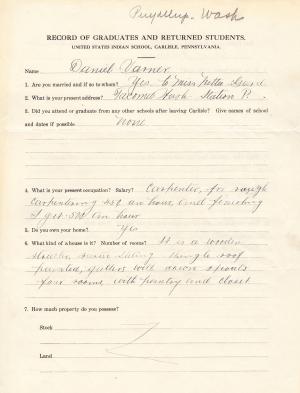 Puyallup. Wash
RECORD OF GRADUATES AND RETURNED STUDENTS.
UNITED STATES INDIAN SCHOOL, CARLISLE, PENNSYLVANIA.
Name Daniel Varner
1. Are you married and if so to whom? Yes to Miss Nettie
2. What is your present address? Tacoma Wash Station P.
3. Did you attend or graduate from any other schools after leaving Carlisle? Give names of school
and dates if possible None
4. What is your present occupation? Salary? Carpenter, for rough
Carpentering 45¢ an hour, and finishing
I get 50¢ an hour
5. Do you own your home? Yes
6. What kind of a house is it? Number of rooms? It is a wooden
shingle roof
painted, gutters with down spouts
four rooms, with pantry and closet
7. How much property do you possess?
Stock
Land